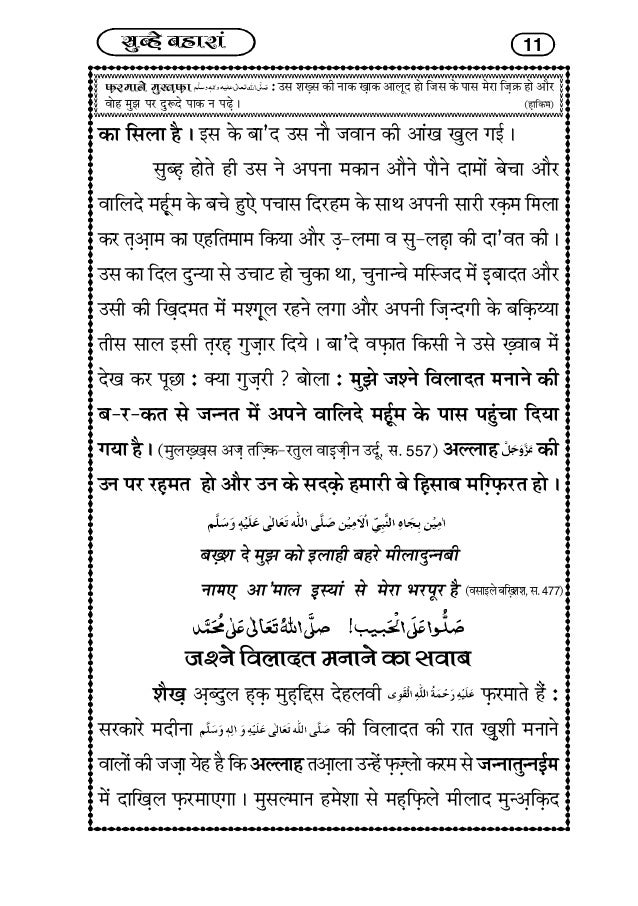 सुब्हे बहारां
11
फ़रमाने मुस्त़फ़ा صلى الله تعالى عليه واله وسلم : उस शख़्स की नाक ख़ाक आलूद हो जिस के पास मेरा ज़िक्र हो और
वोह मुझ पर दुरूदे पाक न पढ़े । (हाकिम)
का सिला है । इस के बा'द उस नौ जवान की आंख खुल गई ।
सुब्ह़ होते ही उस ने अपना मकान औने पौने दामों बेचा और
वालिदे मर्हू़म के बचे हुऐ पचास दिरहम के साथ अपनी सारी रक़म मिला
कर त़आ़म का एहतिमाम किया और उ़-लमा व सु-लह़ा की दा'वत की ।
उस का दिल दुन्या से उचाट हो चुका था, चुनान्चे मस्जिद में इ़बादत और
उसी की ख़िदमत में मश्ग़ूल रहने लगा और अपनी ज़िन्दगी के बक़िय्या
तीस साल इसी त़रह़ गुज़ार दिये । बा'दे वफ़ात किसी ने उसे ख़्वाब में
देख कर पूछा : क्या गुज़री ? बोला : मुझे जश्ने विलादत मनाने की
ब-र-कत से जन्नत में अपने वालिदे मर्हू़म के पास पहुंचा दिया
गया है । (मुलख़्ख़स अज़ तज़्कि-रतुल वाइज़ीन उर्दू, स. 557) अल्लाह عَزَّوَجَلَّ की
उन पर रह़मत हो और उन के सदक़े हमारी बे ह़िसाब मग़्फ़िरत हो ।
امِيْن بِجَاهِ النَّبِيِّ الْاَمِيْن صَلَّى اللّٰه تَعَالٰى عَلَيْهِ وَسَلَّم
बख़्श दे मुझ को इलाही बहरे मीलादुन्नबी
नामए आ'माल इस्यां से मेरा भरपूर है (वसाइले बख़्शिश, स. 477)
صَلُّوا عَلَى الْحَبِيب! صَلَّى اللّٰهُ تَعَالٰى عَلٰى مُحَمَّد
जश्ने विलादत मनाने का सवाब
शैख़ अ़ब्दुल ह़क़ मुह़द्दिस देहलवी عَلَيْهِ رَحْمَةُ اللّٰهِ الْقَوِى फ़रमाते हैं :
सरकारे मदीना صَلَّى اللّٰه تَعَالٰى عَلَيْهِ وَ اٰلِهٖ وَسَلَّم की विलादत की रात ख़ुशी मनाने
वालों की जज़ा येह है कि अल्लाह तआ़ला उन्हें फ़ज़्लो करम से जन्नातुन्नई़म
में दाख़िल फ़रमाएगा । मुसल्मान हमेशा से मह़फ़िले मीलाद मुन्अ़क़िद